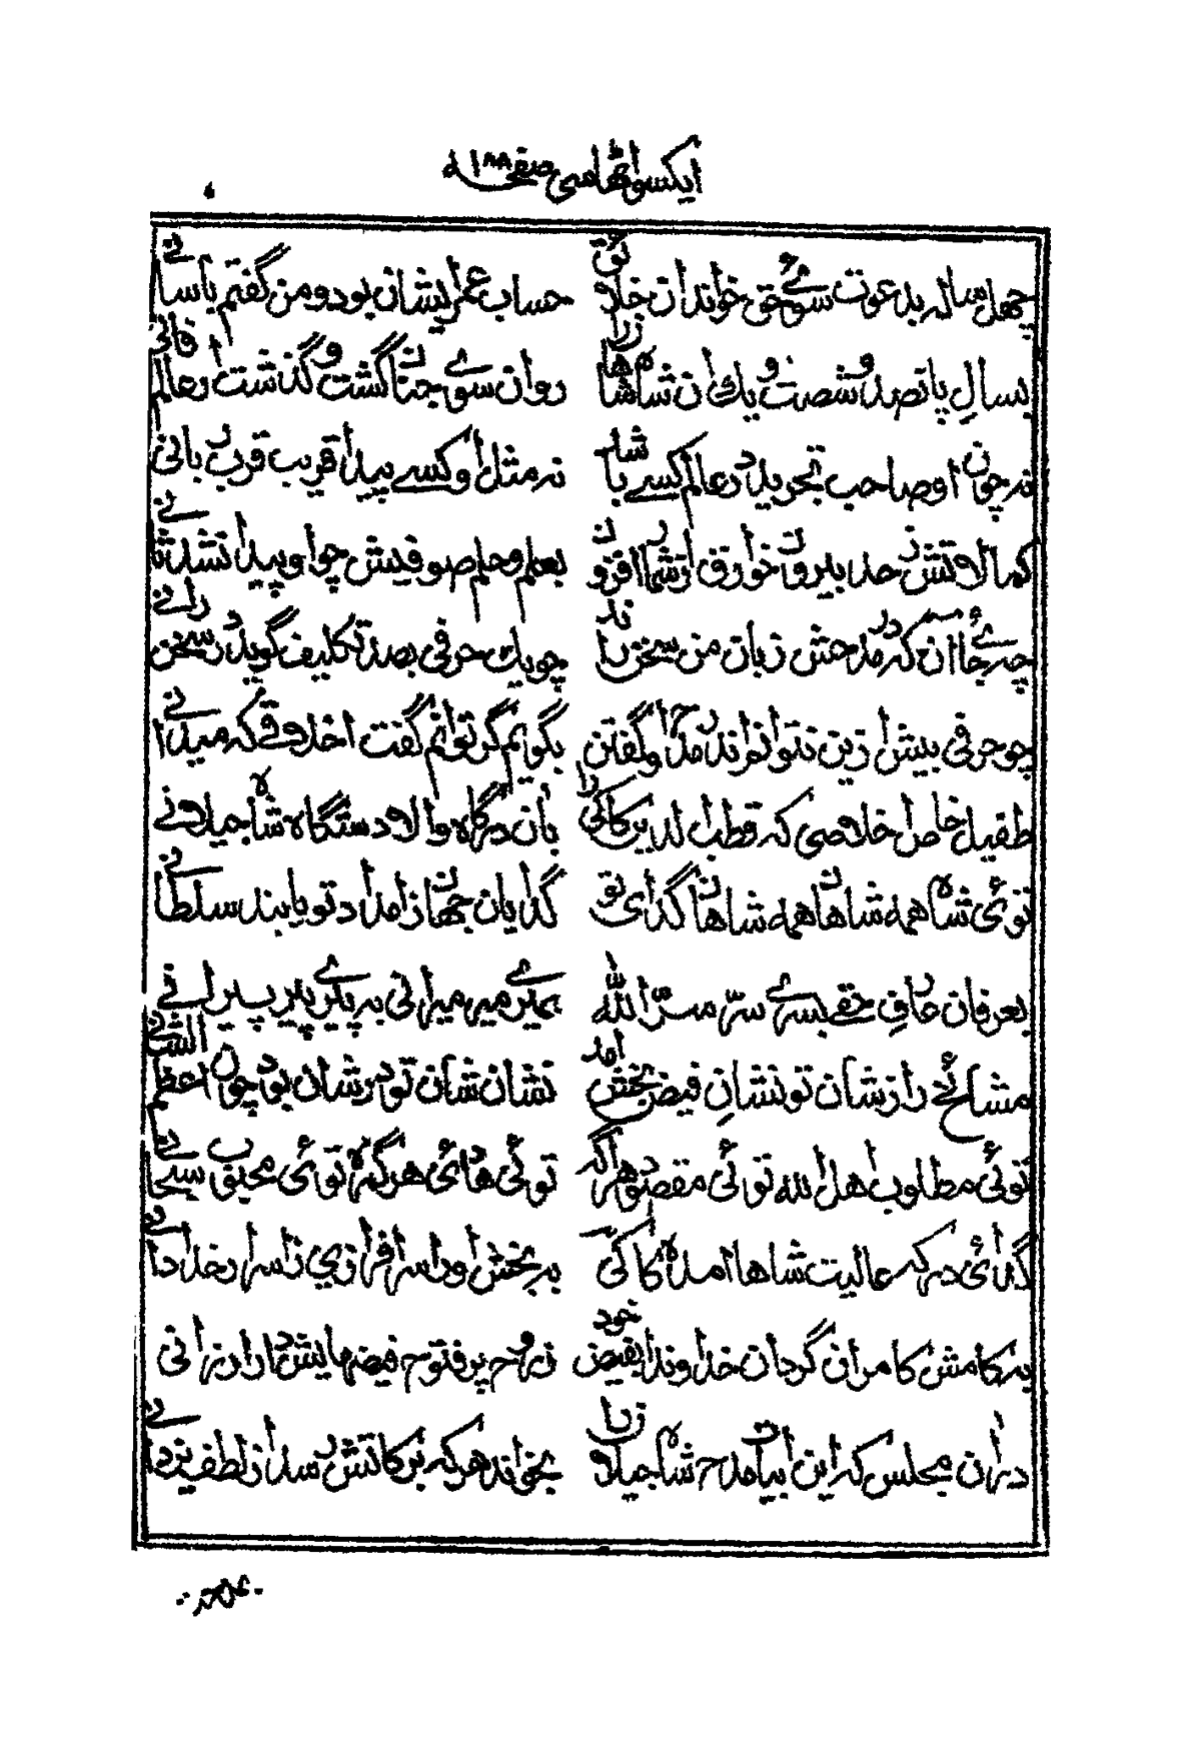 ایکسو اٹھاسی صفحہ ۱۸۸
چهل ساله بدعوت سوئے حق خواندان خلائق حساب عمر ایشان بود و من گفتم باسانے
بسالِ پانصد و شصت و یک ان شاه شاهانرا روان سوے جنان گشت و گذشت از عالم فانی
نه چون او صاحب تجرید در عالم کسے باشد نه مثل او کسے پیدا قریب قرب ربانی
کمالاتش ز حد بیرون خوارق از شمار افزون بعلم و حلم صوفیش چو او پیدا نشد ثانے
چه جاے آن که در مدحش زبان من سخن راند چو یک حرفی بصد تکلیف گوید در سخن رانے
چو حرفی بیش ازین نتوانم اندر مداح او گفتن بگویم گر توانم گفت اخلاقے که میدانے
طفیل خاص اخلاصی که قطب الدین کاکی را بان درگاه والا دستگاه شاه جیلانے
توئی شاه همه شاهان همه شاهان گدای تو گدایان جهان از امداد تو یابند سلطانے
بعرفان عارفِ حقے بسرے سرّ سرّ الله بمیرے میر میرانی به پیرے پیر پیرانے
مشائخ را ز شان تو نشانِ فیض بخش امد نشان شان تو در شان بود چون اعظم الشانے
توئی مطلوب اهل الله توئی مقصود هر اگه توئی هادی هر گمره توئی محبوب سبحانے
گدائی درگه عالیت شاها امده کاکی به بخش او را سرافرازی ز اسرار خدا دانے
به کامش کامران گردان خداوندا بفیض خود ز روح پر فتوح فیضهایش دار ارزانی
دران مجلس که این ابیات مدح شاه جیلانرا بخواند هر که برکاتش رسد از لطف یزدانے